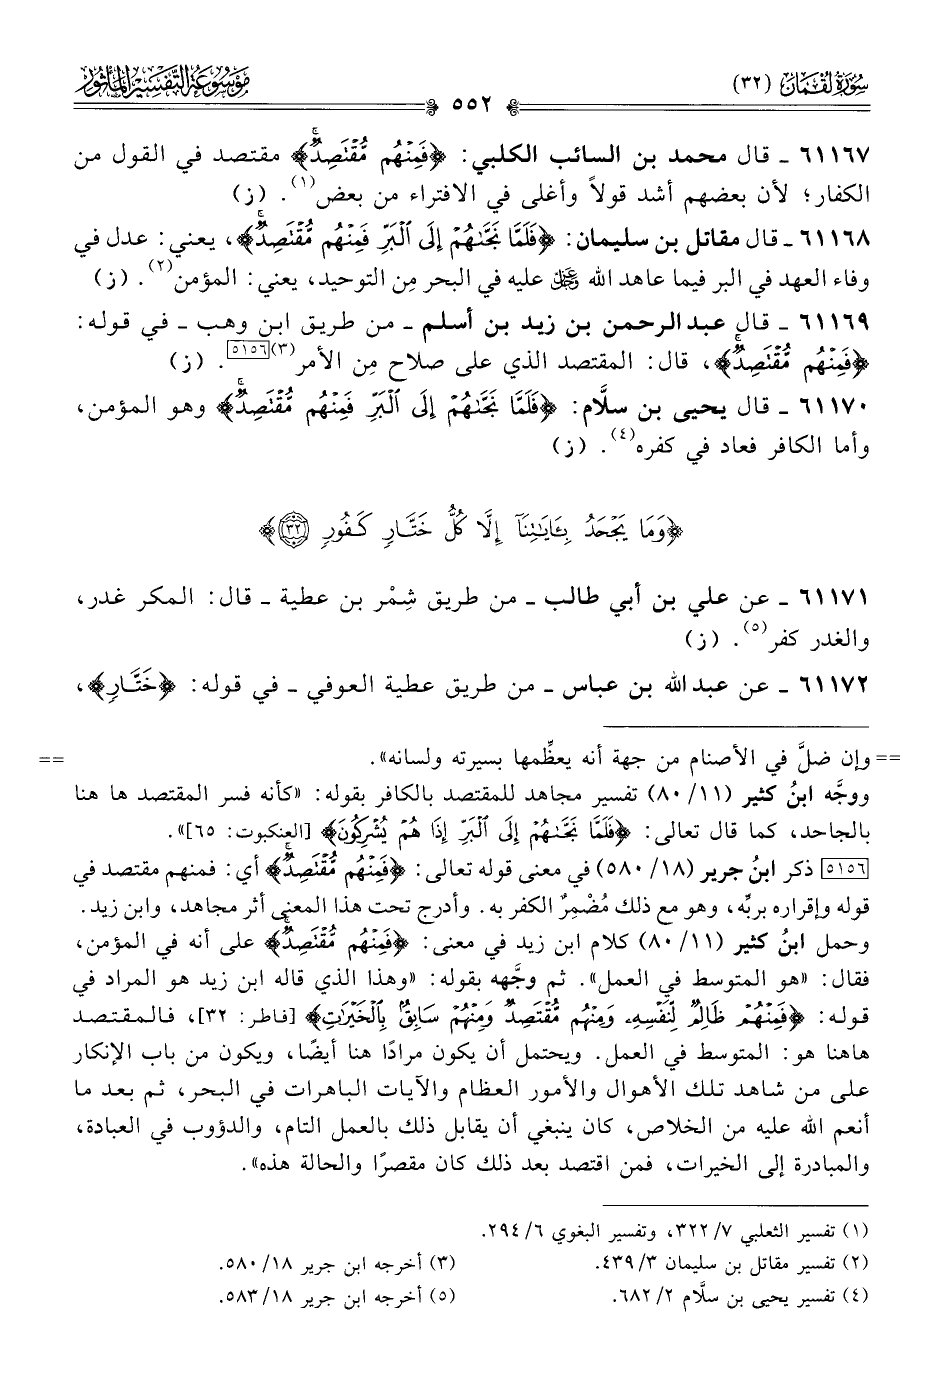 سورة لقمان (٣٢)
٥٥٢
موسوعة التفسير المأثور
٦١١٦٧ ـ قال محمد بن السائب الكلبي: ﴿فَمِنْهُم مُّقْتَصِدٌ﴾ مقتصد في القول من
الكفار؛ لأن بعضهم أشد قولاً وأغلى في الافتراء من بعض(١). (ز)
٦١١٦٨ ـ قال مقاتل بن سليمان: ﴿فَلَمَّا نَجَّىٰهُمْ إِلَى ٱلْبَرِّ فَمِنْهُم مُّقْتَصِدٌ﴾، يعني: عدل في
وفاء العهد في البر فيما عاهد الله ﷻ عليه في البحر مِن التوحيد، يعني: المؤمن(٢). (ز)
٦١١٦٩ ـ قال عبد الرحمن بن زيد بن أسلم ـ من طريق ابن وهب ـ في قوله:
﴿فَمِنْهُم مُّقْتَصِدٌ﴾، قال: المقتصد الذي على صلاح مِن الأمر(٣)[٥١٥٦]. (ز)
٦١١٧٠ ـ قال يحيى بن سلَّام: ﴿فَلَمَّا نَجَّىٰهُمْ إِلَى ٱلْبَرِّ فَمِنْهُم مُّقْتَصِدٌ﴾ وهو المؤمن،
وأما الكافر فعاد في كفره(٤). (ز)
﴿وَمَا يَجْحَدُ بِـَٔايَـٰتِنَآ إِلَّا كُلُّ خَتَّارٍ كَفُورٍ ٣٢﴾
٦١١٧١ ـ عن علي بن أبي طالب ـ من طريق شِمْر بن عطية ـ قال: المكر غدر،
والغدر كفر(٥). (ز)
٦١١٧٢ ـ عن عبد الله بن عباس ـ من طريق عطية العوفي ـ في قوله: ﴿خَتَّارٍ﴾،
== وإن ضلَّ في الأصنام من جهة أنه يعظِّمها بسيرته ولسانه». ==
ووجَّه ابنُ كثير (١١/ ٨٠) تفسير مجاهد للمقتصد بالكافر بقوله: «كأنه فسر المقتصد ها هنا
بالجاحد، كما قال تعالى: ﴿فَلَمَّا نَجَّىٰهُمْ إِلَى ٱلْبَرِّ إِذَا هُمْ يُشْرِكُونَ﴾ [العنكبوت: ٦٥]».
[٥١٥٦] ذكر ابنُ جرير (١٨/ ٥٨٠) في معنى قوله تعالى: ﴿فَمِنْهُم مُّقْتَصِدٌ﴾ أي: فمنهم مقتصد في
قوله وإقراره بربِّه، وهو مع ذلك مُضْمِرٌ الكفر به. وأدرج تحت هذا المعنى أثر مجاهد، وابن زيد.
وحمل ابنُ كثير (١١/ ٨٠) كلام ابن زيد في معنى: ﴿فَمِنْهُم مُّقْتَصِدٌ﴾ على أنه في المؤمن،
فقال: «هو المتوسط في العمل». ثم وجَّهه بقوله: «وهذا الذي قاله ابن زيد هو المراد في
قوله: ﴿فَمِنْهُمْ ظَالِمٌ لِّنَفْسِهِۦ وَمِنْهُم مُّقْتَصِدٌ وَمِنْهُمْ سَابِقٌۢ بِٱلْخَيْرَٰتِ﴾ [فاطر: ٣٢]، فالمقتصد
هاهنا هو: المتوسط في العمل. ويحتمل أن يكون مرادًا هنا أيضًا، ويكون من باب الإنكار
على من شاهد تلك الأهوال والأمور العظام والآيات الباهرات في البحر، ثم بعد ما
أنعم الله عليه من الخلاص، كان ينبغي أن يقابل ذلك بالعمل التام، والدؤوب في العبادة،
والمبادرة إلى الخيرات، فمن اقتصد بعد ذلك كان مقصرًا والحالة هذه».
(١) تفسير الثعلبي ٧/ ٣٢٢، وتفسير البغوي ٦/ ٢٩٤.
(٢) تفسير مقاتل بن سليمان ٣/ ٤٣٩.
(٣) أخرجه ابن جرير ١٨/ ٥٨٠.
(٤) تفسير يحيى بن سلَّام ٢/ ٦٨٢.
(٥) أخرجه ابن جرير ١٨/ ٥٨٣.